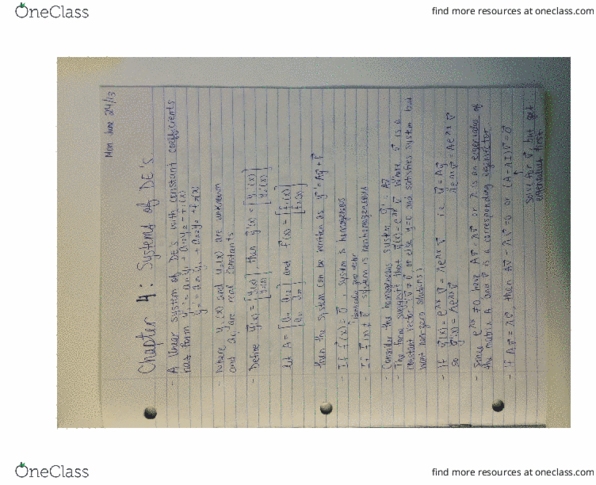 OneClass
find more resources at oneclass.com
Mon June 24/13
Chapter 4: Systems of DE's
- A linear system of DE's with constant coefficients
has form y₁' = a₁₁y₁ + a₁₂y₂ + f₁(x)
y₂' = a₂₁y₁ + a₂₂y₂ + f₂(x)
- where y₁(x) and y₂(x) are unknown
and aᵢⱼ are real constants
- Define y⃗(x) = [y₁(x) y₂(x)], then y⃗'(x) = [y₁'(x) y₂'(x)]
Let A = [a₁₁ a₁₂ a₂₁ a₂₂] and F⃗(x) = [f₁(x) f₂(x)]
then the system can be written as y⃗' = Ay⃗ + F⃗
- If F⃗(x) = 0⃗, system is homogeneous
- If F⃗(x) ≠ 0⃗ system is nonhomogeneous
- Consider the homogeneous system y⃗' = Ay⃗
- The form suggests that y⃗(x) = e^λx v⃗ where v⃗ is a
constant vector v⃗ ≠ 0⃗, or else y⃗ = 0 and satisfies system but
want nonzero solutions
- If y⃗(x) = e^λx v⃗ = λe^λx v⃗ ie y⃗' = Ay⃗
so y⃗'(x) = λe^λx v⃗ Ae^λx v⃗ = λe^λx v⃗
- Since e^λx ≠ 0, have Av⃗ = λv⃗ or λ is an eigenvalue of
the matrix A and v⃗ is a corresponding eigenvector
- If Av⃗ = λv⃗, then Av⃗ - λv⃗ = 0 or (A - λI)v⃗ = 0⃗
solve for v⃗, but get
eigenvalues first
OneClass
find more resources at oneclass.com